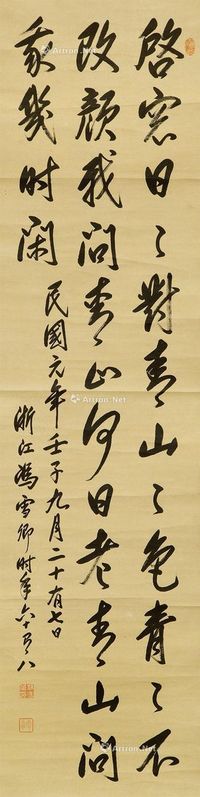 啓窓日〻對青山〻色青〻不
改顔我問青山何日老青山問
我幾時閑
民國元年壬子九月二十有七日
浙江馮雪卿時年六十有八
Artron.Net
Artron.Net
Artron.Net
Artron.Net